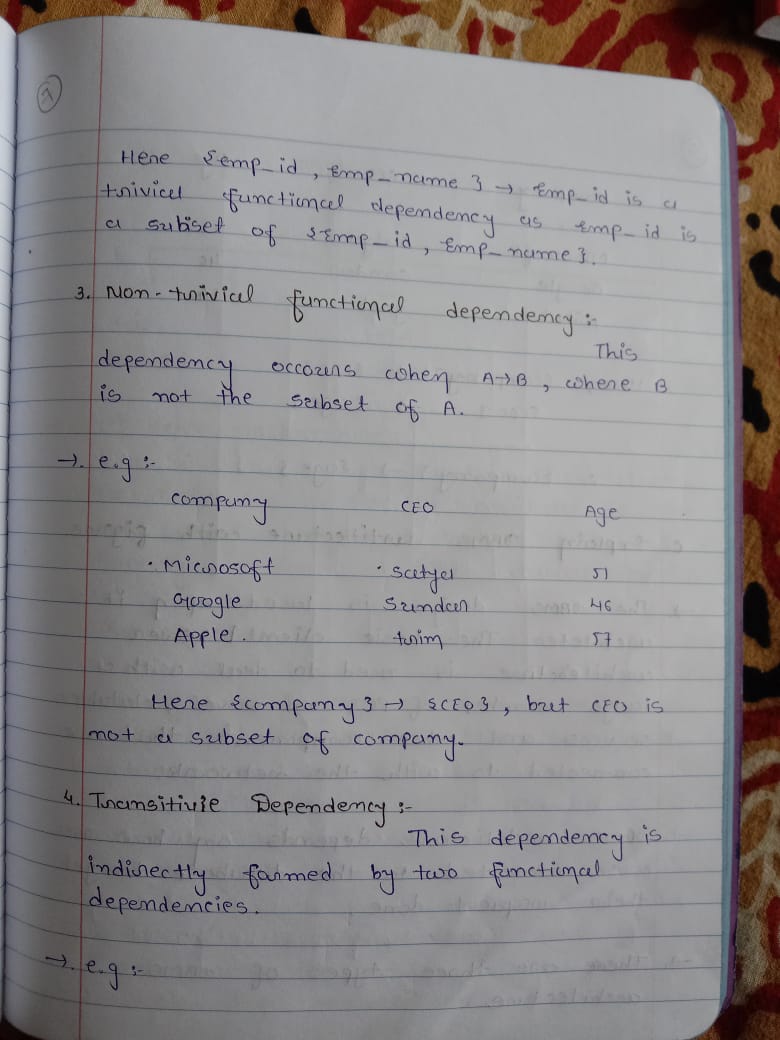 7
Here {emp_id, Emp_name} → Emp_id is a
trivial functional dependency as Emp_id is
a subset of {Emp_id, Emp_name}.
3. Non-trivial functional dependency :-
This
dependency occours when A→B, where B
is not the subset of A.
→. e.g :-
company CEO Age
· Microsoft · satya 51
Google Sundar 46
Apple. trim 57
Here {company} → {CEO}, but CEO is
not a subset of company.
4. Transitivie Dependency :-
This dependency is
indirectly farmed by two functional
dependencies.
→. e.g :-